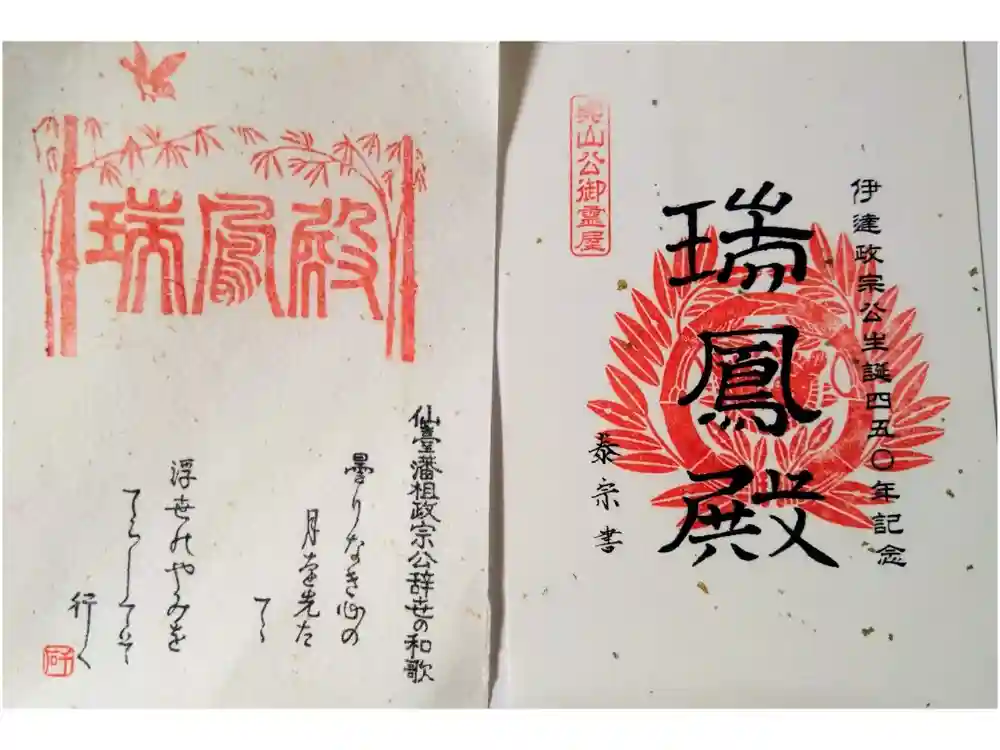 瑞鳳殿
仙臺藩祖政宗公辞世の和歌
曇りなき心の
月を先た
てゝ
浮世のやみを
てらしてそ
行く
貞山公御霊屋
伊達政宗公生誕四五〇年記念
瑞鳳殿
泰宗書